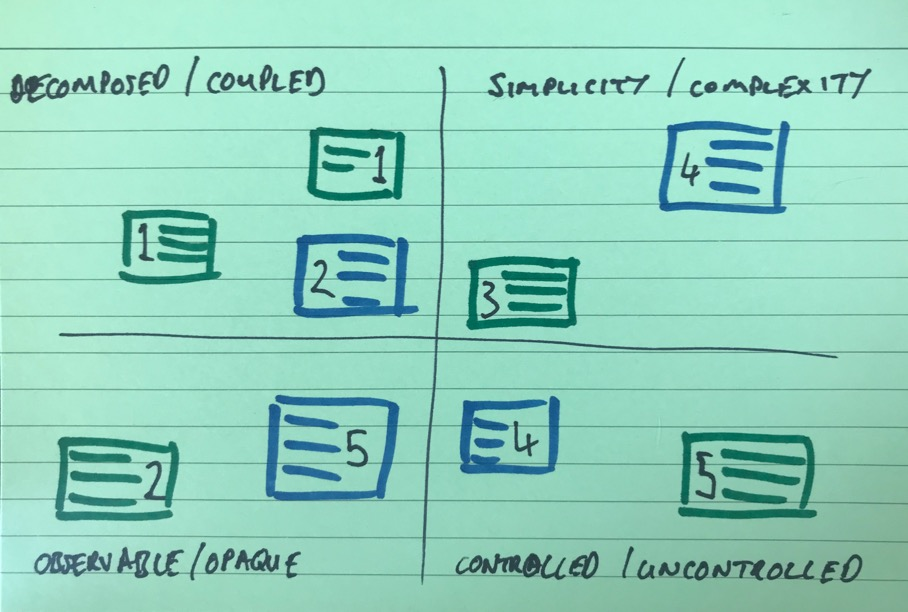 DECOMPOSED / COUPLED
SIMPLICITY / COMPLEXITY
1
1
2
4
3
2
5
4
5
OBSERVABLE / OPAQUE
CONTROLLED / UNCONTROLLED